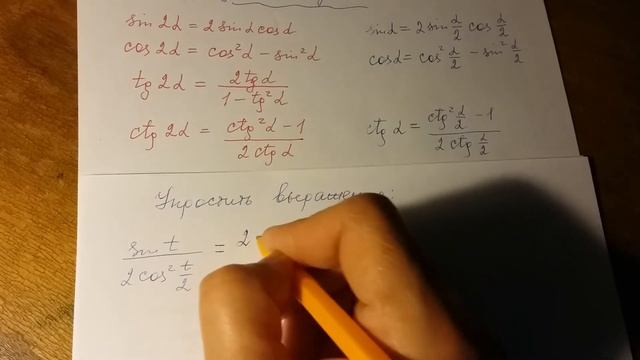 sin 2α = 2 sin α cos α
cos 2α = cos² α − sin² α
tg 2α = 2 tg α / 1 − tg² α
ctg 2α = ctg² α − 1 / 2 ctg α
sin α = 2 sin α/2 cos α/2
cos α = cos² α/2 − sin² α/2
ctg α = ctg² α/2 − 1 / 2 ctg α/2
Упростить выражение:
sin t / 2 cos² t/2 = 2